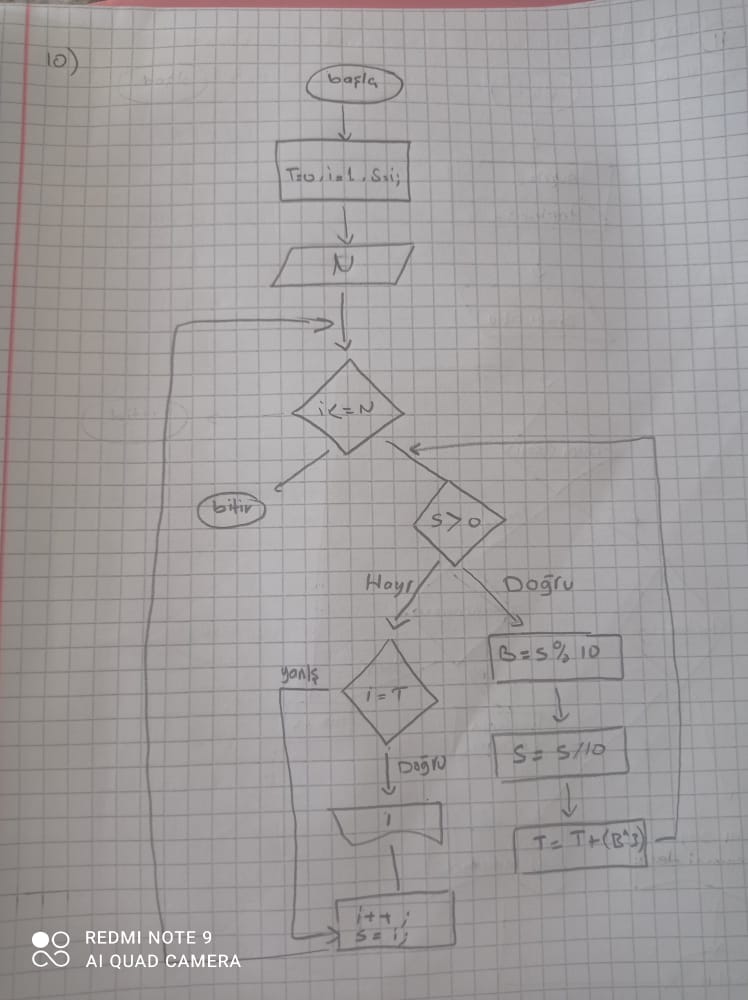 10)
başla
T=0, i=1, S=i;
N
i<=N
bitir
S>0
Hayır
Doğru
B=S%10
yanlış
i=T
S=S/10
Doğru
i
T=T+(B^3)
i++;
S=i;
REDMI NOTE 9
AI QUAD CAMERA